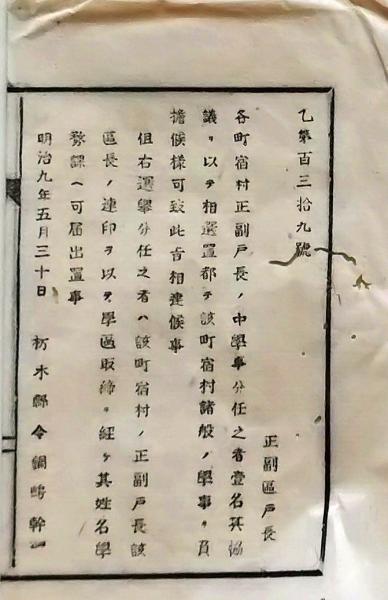 乙第百三拾九號
正副區戸長
各町宿村正副戸長ノ中學事分任之者壹名其協
議ヲ以テ相選置都テ該町宿村諸般ノ學事ヲ負
擔候様可致此旨相達候事
但右選擧分任之者ハ該町宿村ノ正副戸長該
區長ノ連印ヲ以テ學區取締ヲ經テ其姓名學
務課ヘ可届出置事
明治九年五月三十日　栃木縣令鍋嶋幹